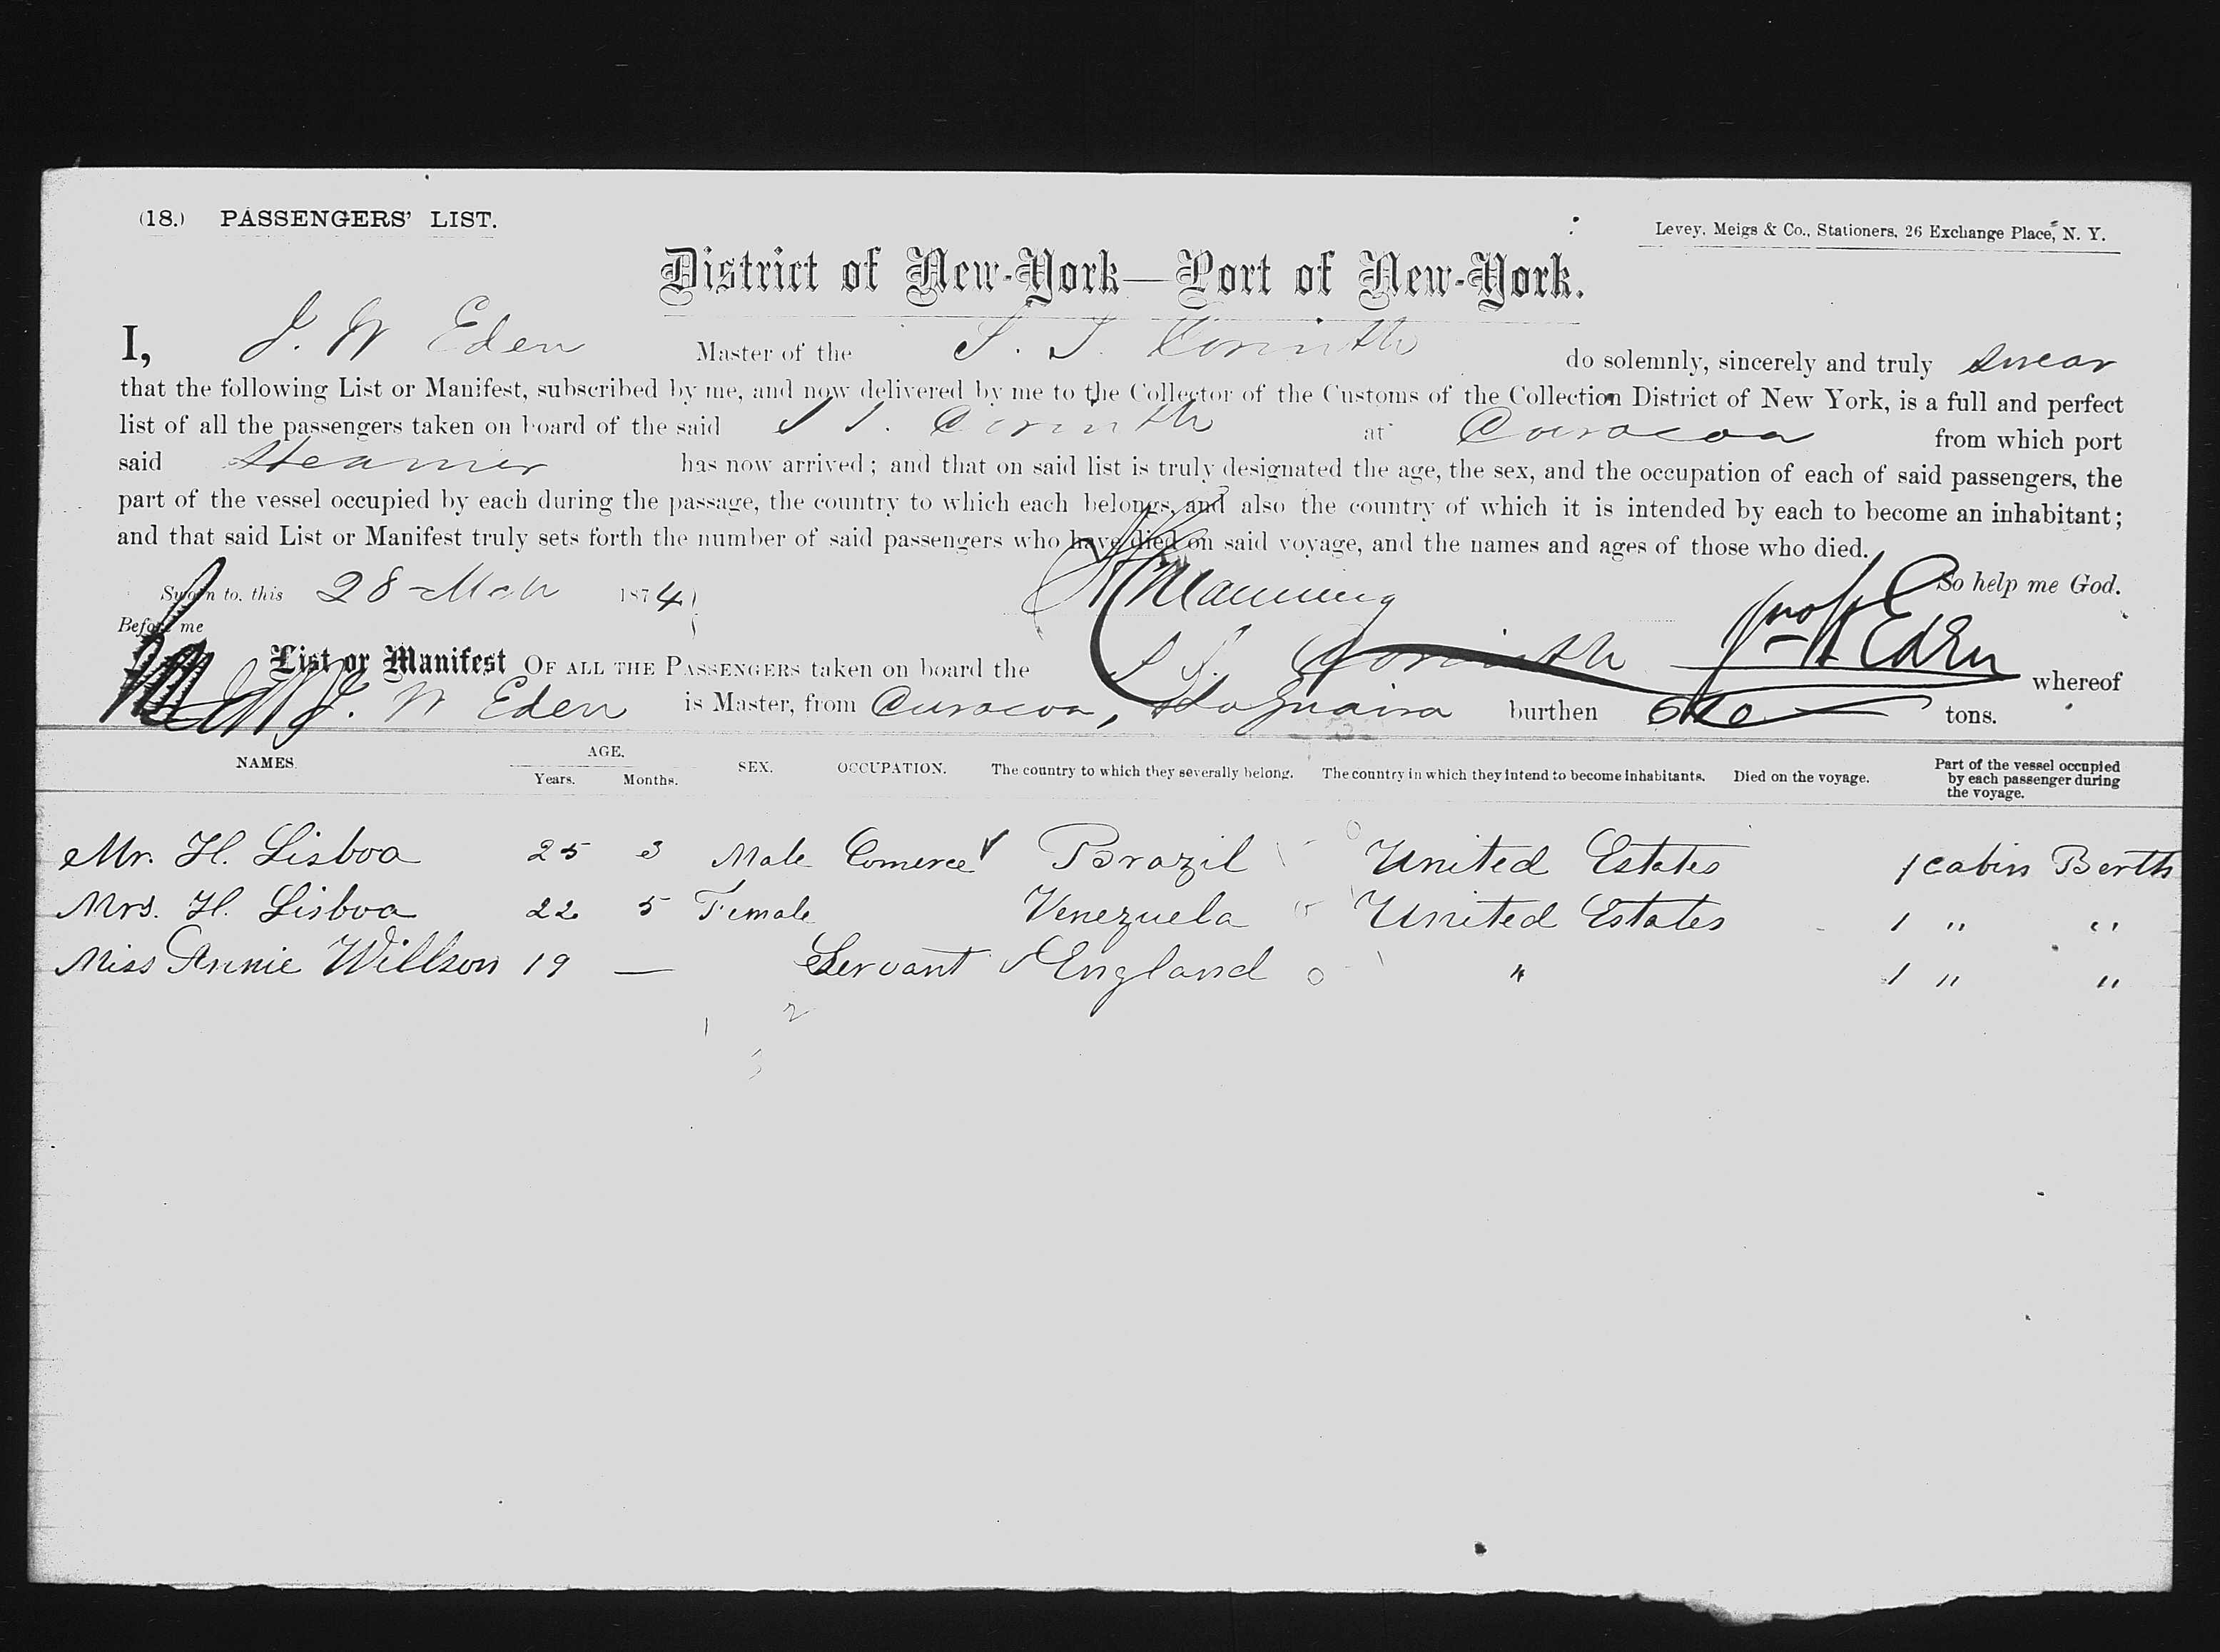 (18.) PASSENGERS' LIST.
Levey, Meigs & Co., Stationers, 26 Exchange Place, N. Y.
District of New-York—Port of New-York.
I, J. W Eden Master of the S. S. Corinth do solemnly, sincerely and truly swear
that the following List or Manifest, subscribed by me, and now delivered by me to the Collector of the Customs of the Collection District of New York, is a full and perfect
list of all the passengers taken on board of the said S S. Corinth at Curacoa from which port
said Steamer has now arrived; and that on said list is truly designated the age, the sex, and the occupation of each of said passengers, the
part of the vessel occupied by each during the passage, the country to which each belongs, and also the country of which it is intended by each to become an inhabitant;
and that said List or Manifest truly sets forth the number of said passengers who have died on said voyage, and the names and ages of those who died.
So help me God.
Sworn to, this 28 Mch 1874
Manning
Before me
Eden
List or Manifest OF ALL THE PASSENGERS taken on board the S S. Corinth whereof
J. W Eden is Master, from Curacoa, LaGuaira burthen tons.
NAMES. AGE. Years. Months. SEX. OCCUPATION. The country to which they severally belong. The country in which they intend to become inhabitants. Died on the voyage. Part of the vessel occupied by each passenger during the voyage.
Mr. H. Lisboa 25 3 Male Comerce Brazil United Estates 1 cabin Berth
Mrs. H. Lisboa 22 5 Female Venezuela United Estates 1 " "
Miss Annie Willson 19 — Servant England " 1 " "